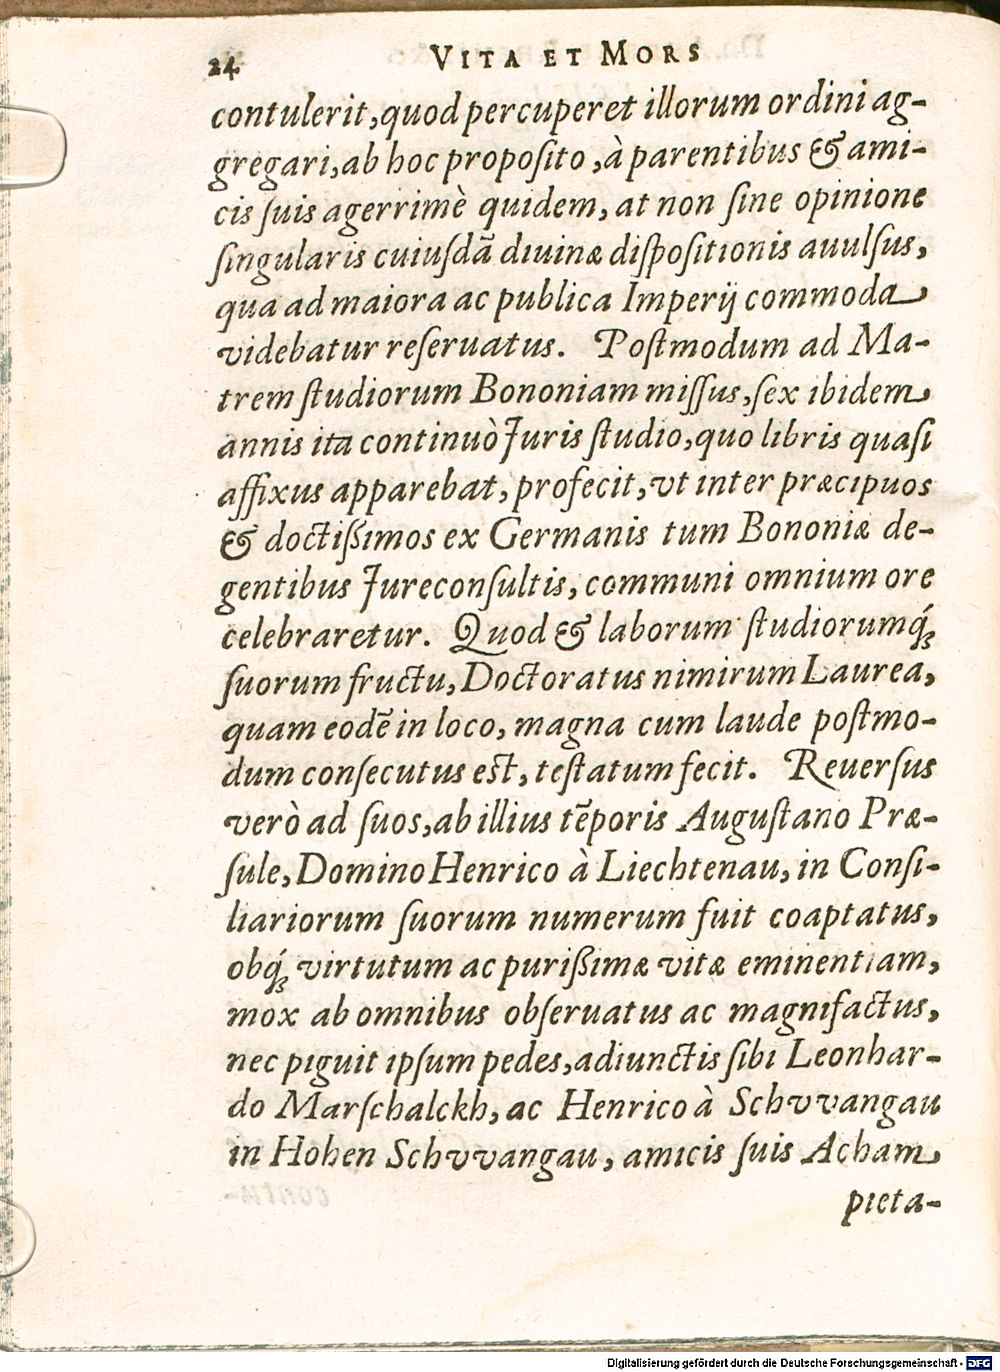 24 VITA ET MORS
contulerit, quod percuperet illorum ordini ag-
gregari, ab hoc proposito, à parentibus & ami-
cis suis agerrimè quidem, at non sine opinione
singularis cuiusdã diuinæ dispositionis auulsus,
qua ad maiora ac publica Imperij commoda
videbatur reseruatus. Postmodum ad Ma-
trem studiorum Bononiam missus, sex ibidem
annis ita continuò Juris studio, quo libris quasi
affixus apparebat, profecit, vt inter præcipuos
& doctißimos ex Germanis tum Bononiæ de-
gentibus Jureconsultis, communi omnium ore
celebraretur. Quod & laborum studiorumq́;
suorum fructu, Doctoratus nimirum Laurea,
quam eodẽ in loco, magna cum laude postmo-
dum consecutus est, testatum fecit. Reuersus
verò ad suos, ab illius tẽporis Augustano Præ-
sule, Domino Henrico à Liechtenau, in Consi-
liariorum suorum numerum fuit coaptatus,
obq́; virtutum ac purißimæ vitæ eminentiam,
mox ab omnibus obseruatus ac magnifactus,
nec piguit ipsum pedes, adiunctis sibi Leonhar-
do Marschalckh, ac Henrico à Schvvangau
in Hohen Schvvangau, amicis suis Acham
pieta-
Digitalisierung gefördert durch die Deutsche Forschungsgemeinschaft - DFG